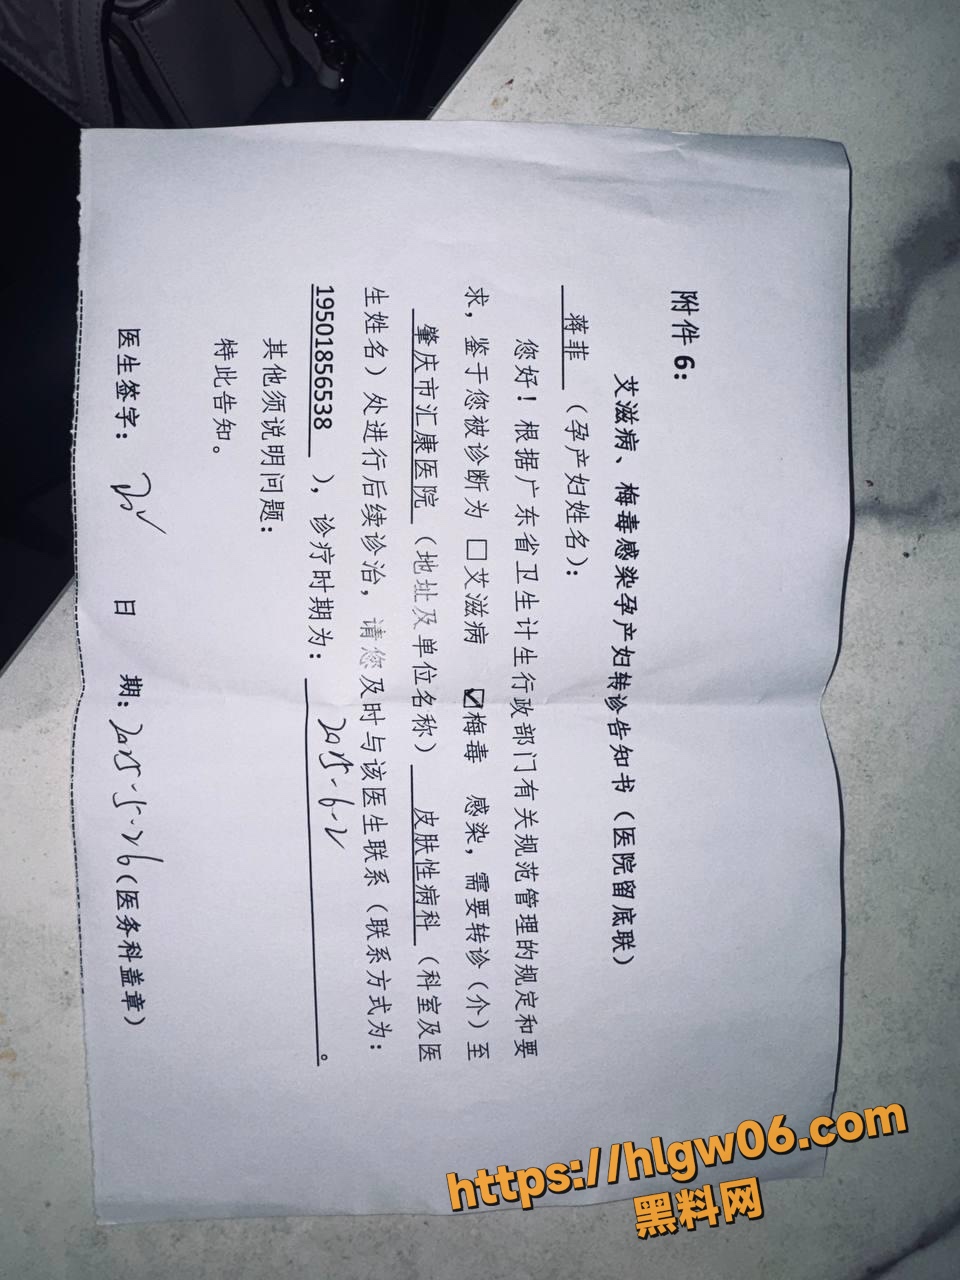 附件 6：
艾滋病、梅毒感染孕产妇转诊告知书（医院留底联）
蒋菲 （孕产妇姓名）：
您好！根据广东省卫生计生行政部门有关规范管理的规定和要
求，鉴于您被诊断为 □艾滋病 ☑梅毒 感染，需要转诊（介）至
肇庆市汇康医院 （地址及单位名称） 皮肤性病科 （科室及医
生姓名）处进行后续诊治，请您及时与该医生联系（联系方式为：
19501856538 ），诊疗时期为： 2025-6-2 。
其他须说明问题：
特此告知。
医生签字： 日 期：2025-5-26（医务科盖章）
https://hlgw06.com
黑料网